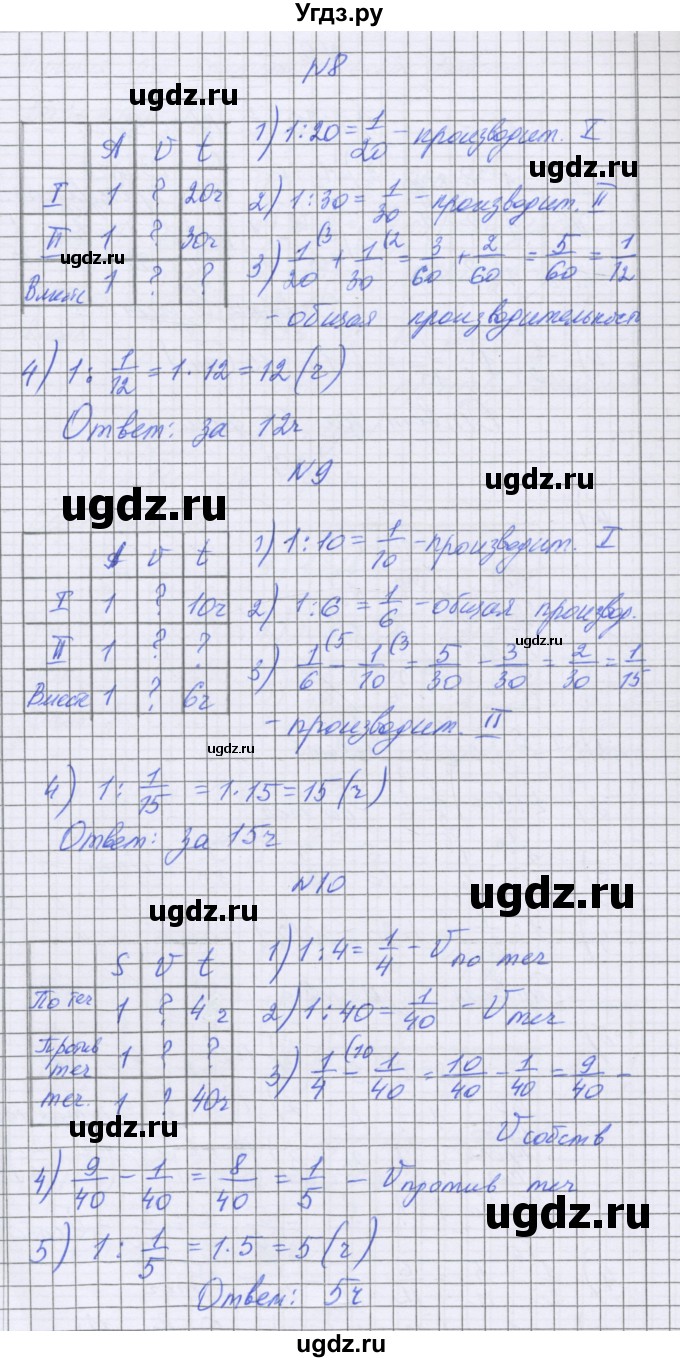 Угдз.ру
N8
ugdz.ru
A v t
I 1 ? 20ч
II 1 ? 30ч
Вместе 1 ? ?
1) 1:20 = 1/20 - производит. I
ugdz.ru
2) 1:30 = 1/30 - производит. II
ugdz.ru
3) 1/20 (3 + 1/30 (2 = 3/60 + 2/60 = 5/60 = 1/12
- общая производительность
4) 1 : 1/12 = 1 · 12 = 12 (ч)
Ответ: за 12ч
N9
ugdz.ru
ugdz.ru
A v t
I 1 ? 10ч
II 1 ? ?
Вместе 1 ? 6ч
1) 1:10 = 1/10 - производит. I
2) 1:6 = 1/6 - общая производ.
ugdz.ru
3) 1/6 (5 - 1/10 (3 = 5/30 - 3/30 = 2/30 = 1/15
- производит. II
ugdz.ru
4) 1 : 1/15 = 1 · 15 = 15 (ч)
Ответ: за 15ч
N10
ugdz.ru
ugdz.ru
S v t
По теч 1 ? 4ч
Против теч 1 ? ?
теч. 1 ? 40ч
1) 1:4 = 1/4 - v по теч
2) 1:40 = 1/40 - v теч
3) 1/4 (10 - 1/40 = 10/40 - 1/40 = 9/40 -
v собств
ugdz.ru
4) 9/40 - 1/40 = 8/40 = 1/5 - v против теч
ugdz.ru
5) 1 : 1/5 = 1 · 5 = 5 (ч)
Ответ: 5ч
ugdz.ru